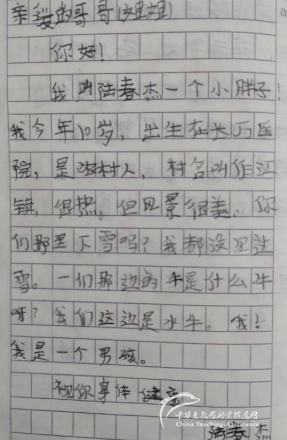 亲爱的哥哥(姐姐)
你好!
我叫陆春杰一个小胖子!
我今年10岁,出生在长万医
院,是农村人,村名叫作江
镇,很热。但风景很美。你
们那里下雪吗?我都没见过
雪。一们那边的牛是什么牛
呀?我们这边是水牛。哦!
我是一个男孩。
祝你身体健康
陆春杰
中华支教与助学信息网
China Teaching Assistance